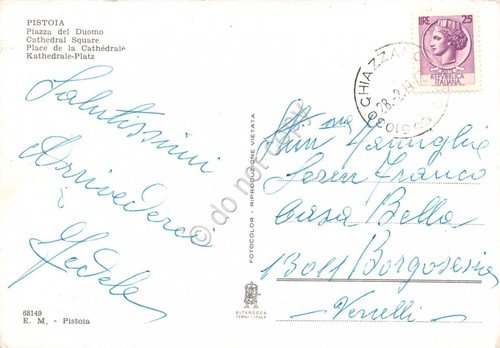 PISTOIA
Piazza del Duomo
Cathedral Square
Place de la Cathédrale
Kathedrale-Platz
LIRE 25
REPUBBLICA
ITALIANA
CHIAZZA
28-2-19
Salutissimi
Arrivederci
Fedele
Famiglia
Seren Franco
Casa Bella
13011 Borgosesia
Vercelli
FOTOCOLOR - RIPRODUZIONE VIETATA
do not copy
ALTEROCCA
TERNI - ITALY
68149
E. M. - Pistoia